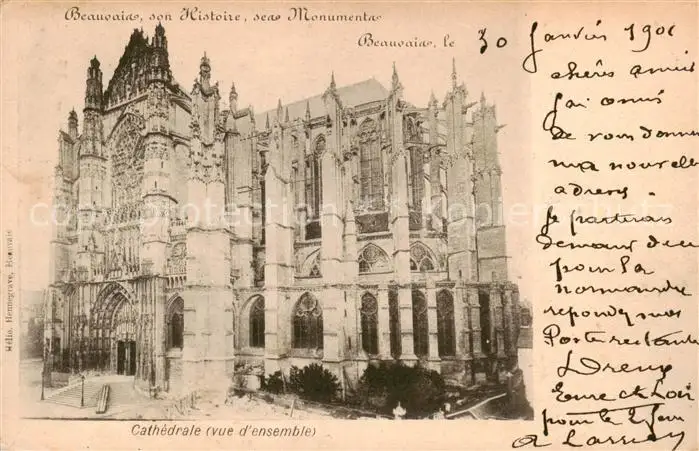 Beauvais, son Histoire, ses Monuments
Beauvais, le 30 Janvier 1901
chères amies
j'ai omis
de vous donner
ma nouvelle
adresse
je partirais
demain
pour la
normandie
repondez nous
Poste restante
Dreux
Eure et Loir
pour le 2
a
Hélio. Hennegrave, Beauvais
Cathédrale (vue d'ensemble)